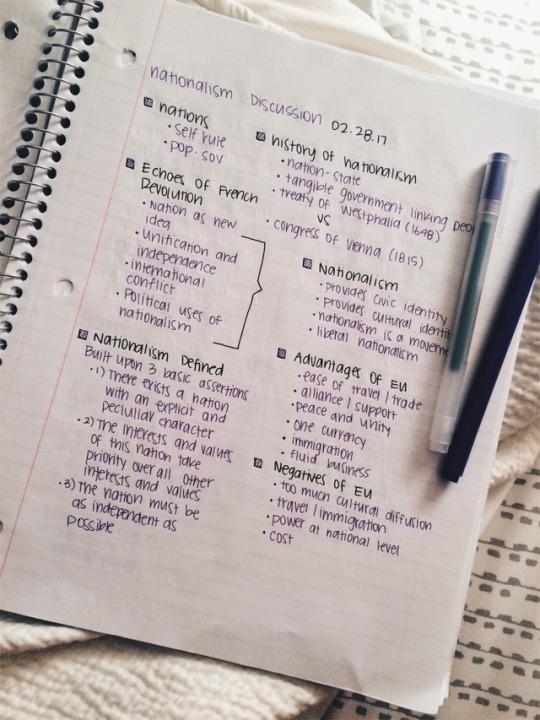 nationalism Discussion 02.28.17
nations
• self rule
• pop. sov
Echoes of French
Revolution
• Nation as new
idea
• Unification and
independence
• international
conflict
• Political uses of
nationalism
Nationalism Defined
Built upon 3 basic assertions
• 1) There exists a nation
with an explicit and
peculiar character
• 2) The interests and values
of this nation take
priority over all other
interests and values
• 3) the nation must be
as independent as
possible
history of nationalism
• nation-state
• tangible government linking peo
• treaty of Westphalia (1648)
vs
• congress of vienna (1815)
Nationalism
• provides civic identity
• provides cultural identit
• nationalism is a movem
• liberal nationalism
Advantages of EU
• ease of travel / trade
• alliance / support
• peace and unity
• one currency
• immigration
• fluid business
Negatives of EU
• too much cultural diffusion
• travel / immigration
• power at national level
• cost